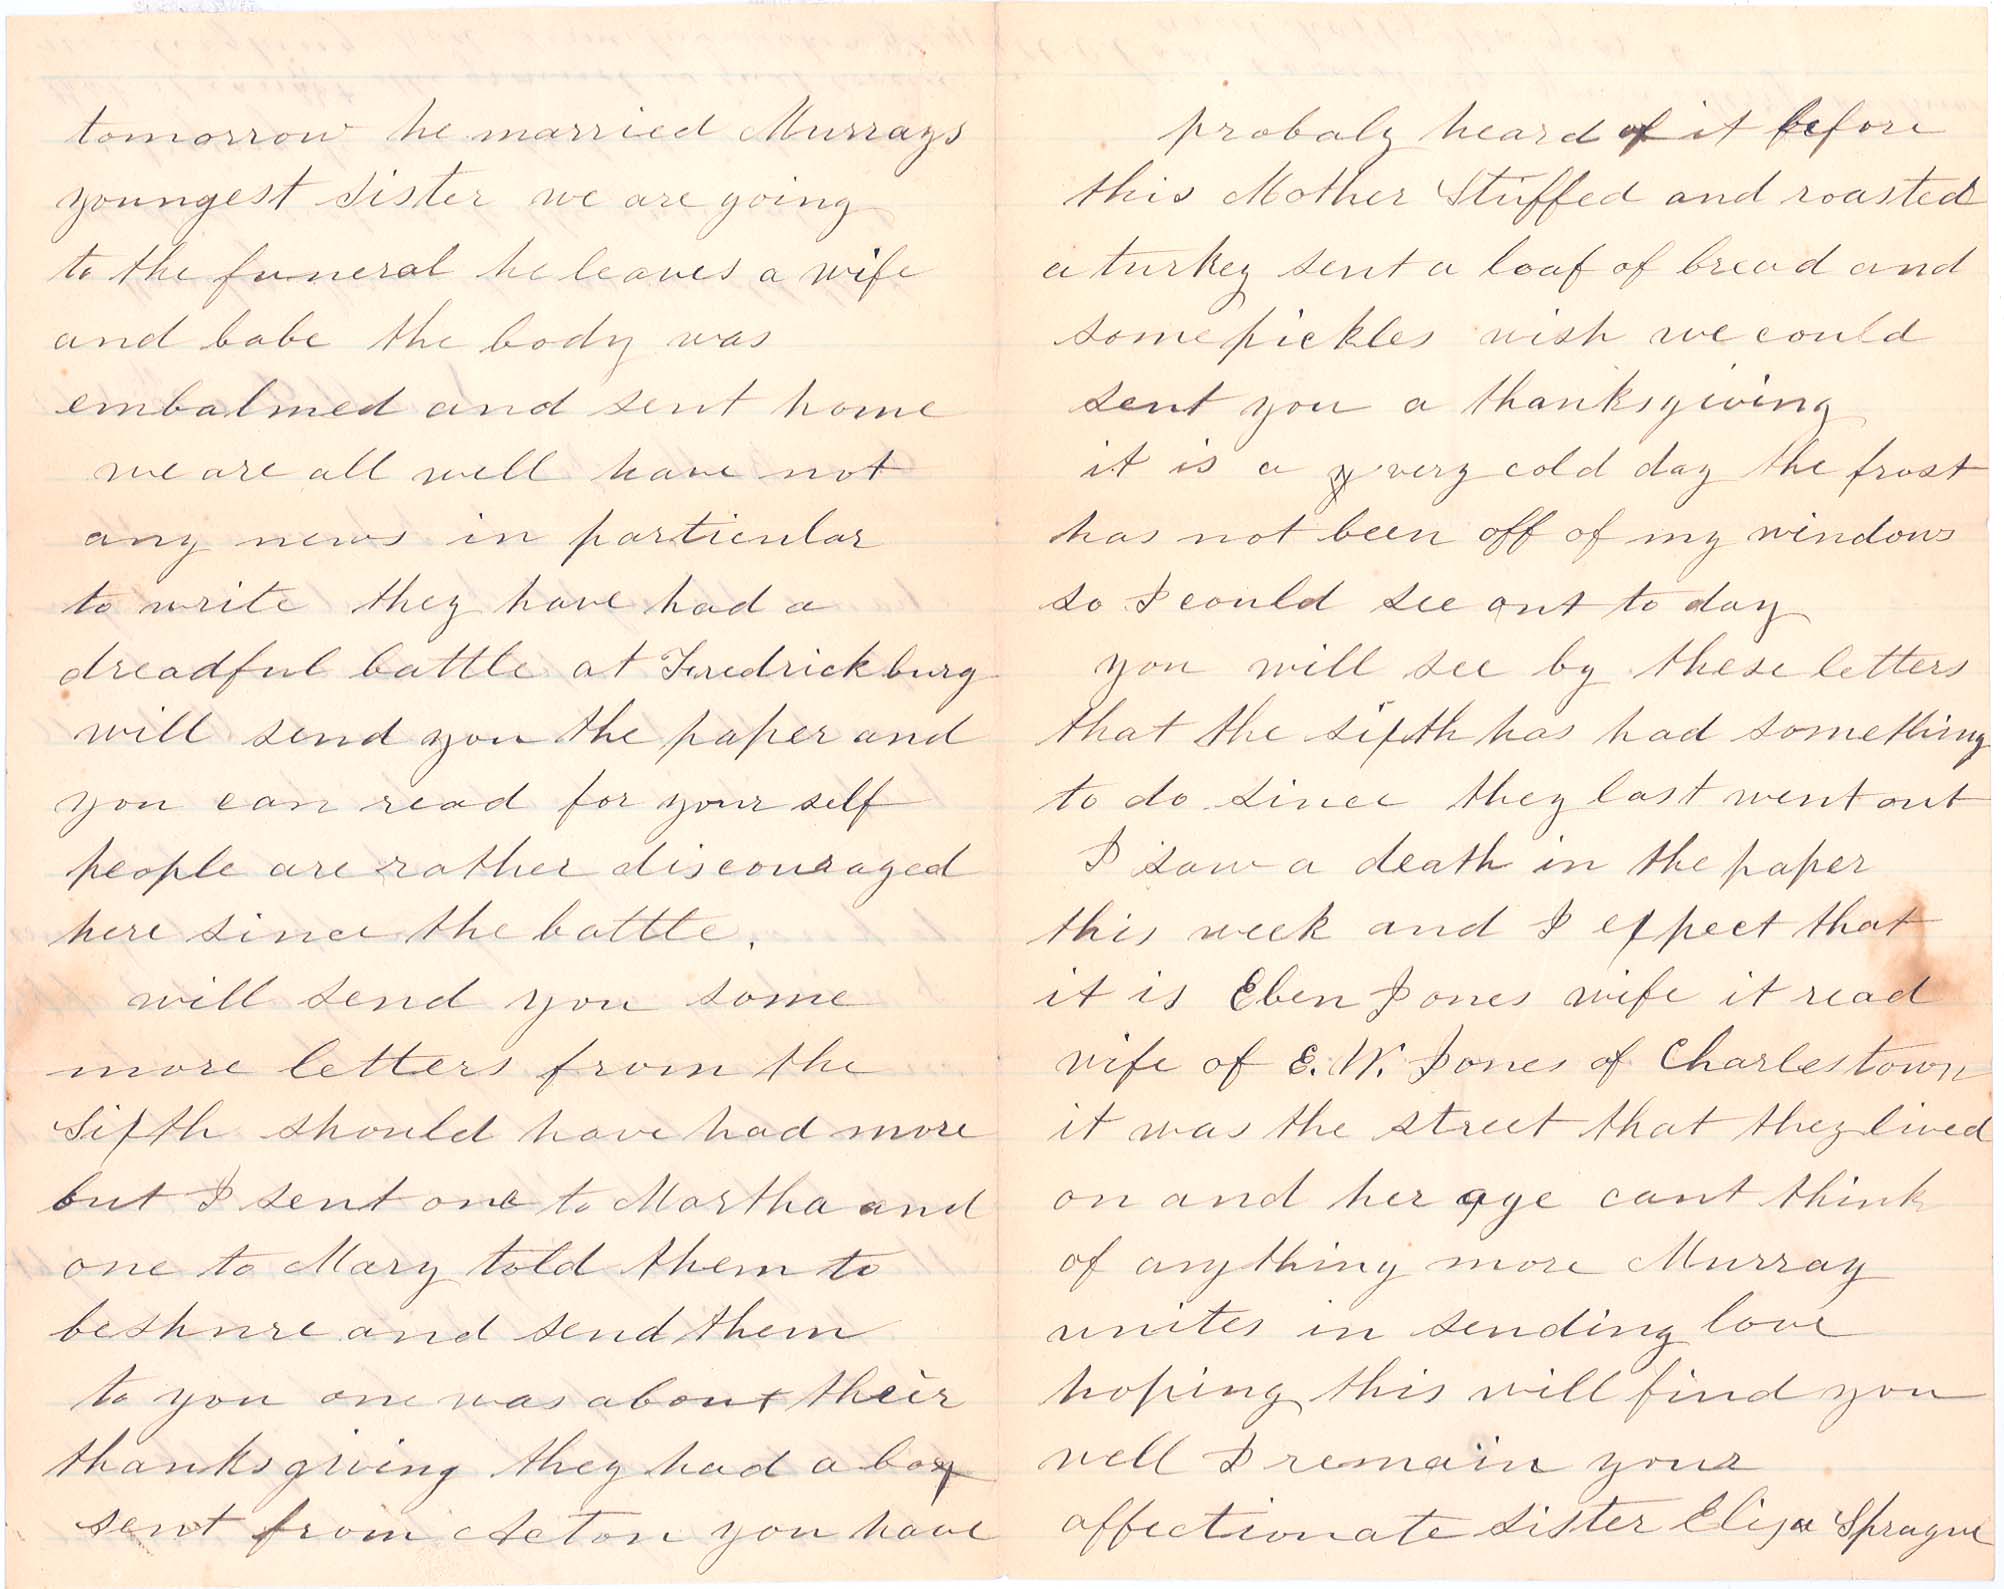 tomorrow he married Murrays
youngest sister we are going
to the funeral he leaves a wife
and babe the body was
embalmed and sent home
we are all well have not
any news in particular
to write they have had a
dreadful battle at Fredrickburg
will send you the paper and
you can read for your self
people are rather discouraged
here since the battle.
will send you some
more letters from the
Sixth should have had more
but I sent one to Martha and
one to Mary told them to
beshure and send them
to you one was about their
thanksgiving they had a box
sent from Acton you have
probaly heard of it before
this Mother Stuffed and roasted
a turkey sent a loaf of bread and
some pickles wish we could
sent you a thanksgiving
it is a very cold day the frost
has not been off of my windows
so I could see out to day
you will see by these letters
that the sixth has had something
to do since they last went out
I saw a death in the paper
this week and I expect that
it is Eben Jones wife it read
wife of E. W. Jones of Charlestown
it was the street that they lived
on and her age cant think
of anything more Murray
unites in sending love
hoping this will find you
well I remain your
affectionate sister Eliza Sprague